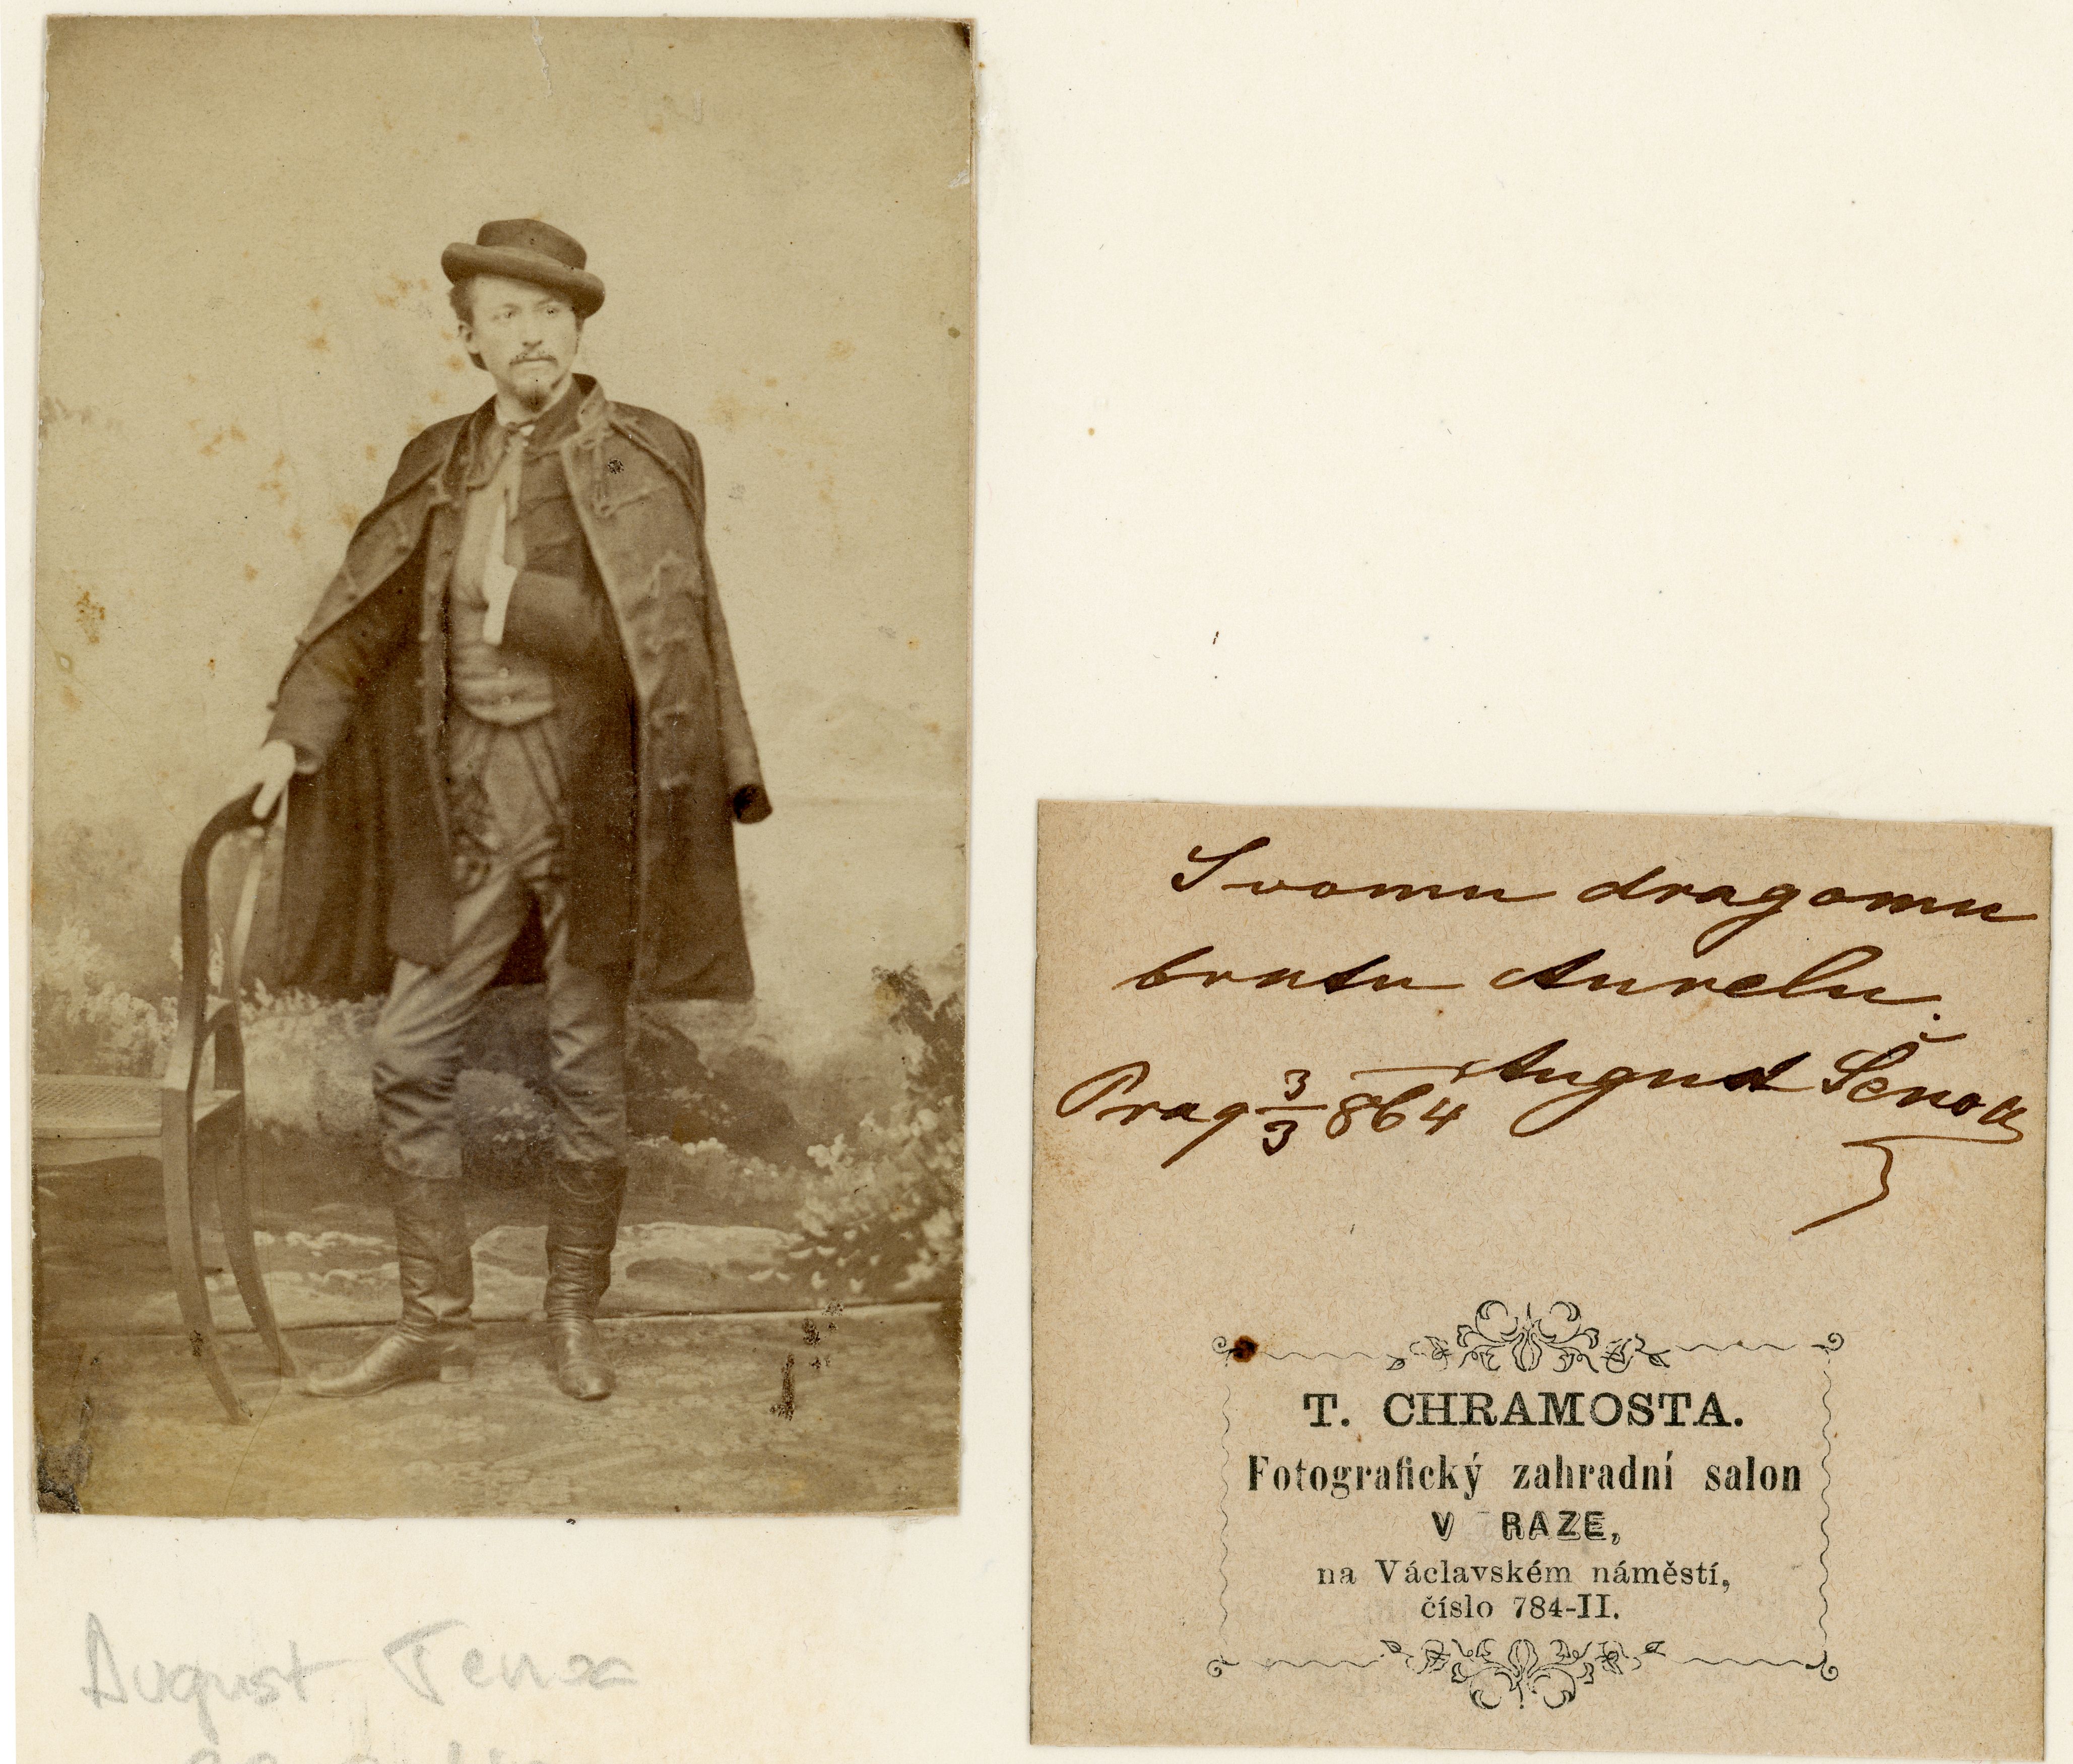 Svomu dragomu
bratu Aurelu.
August Šenoa
Prag 3/3 864
T. CHRAMOSTA.
Fotografický zahradní salon
V RAZE,
na Václavském náměstí,
číslo 784-II.
August